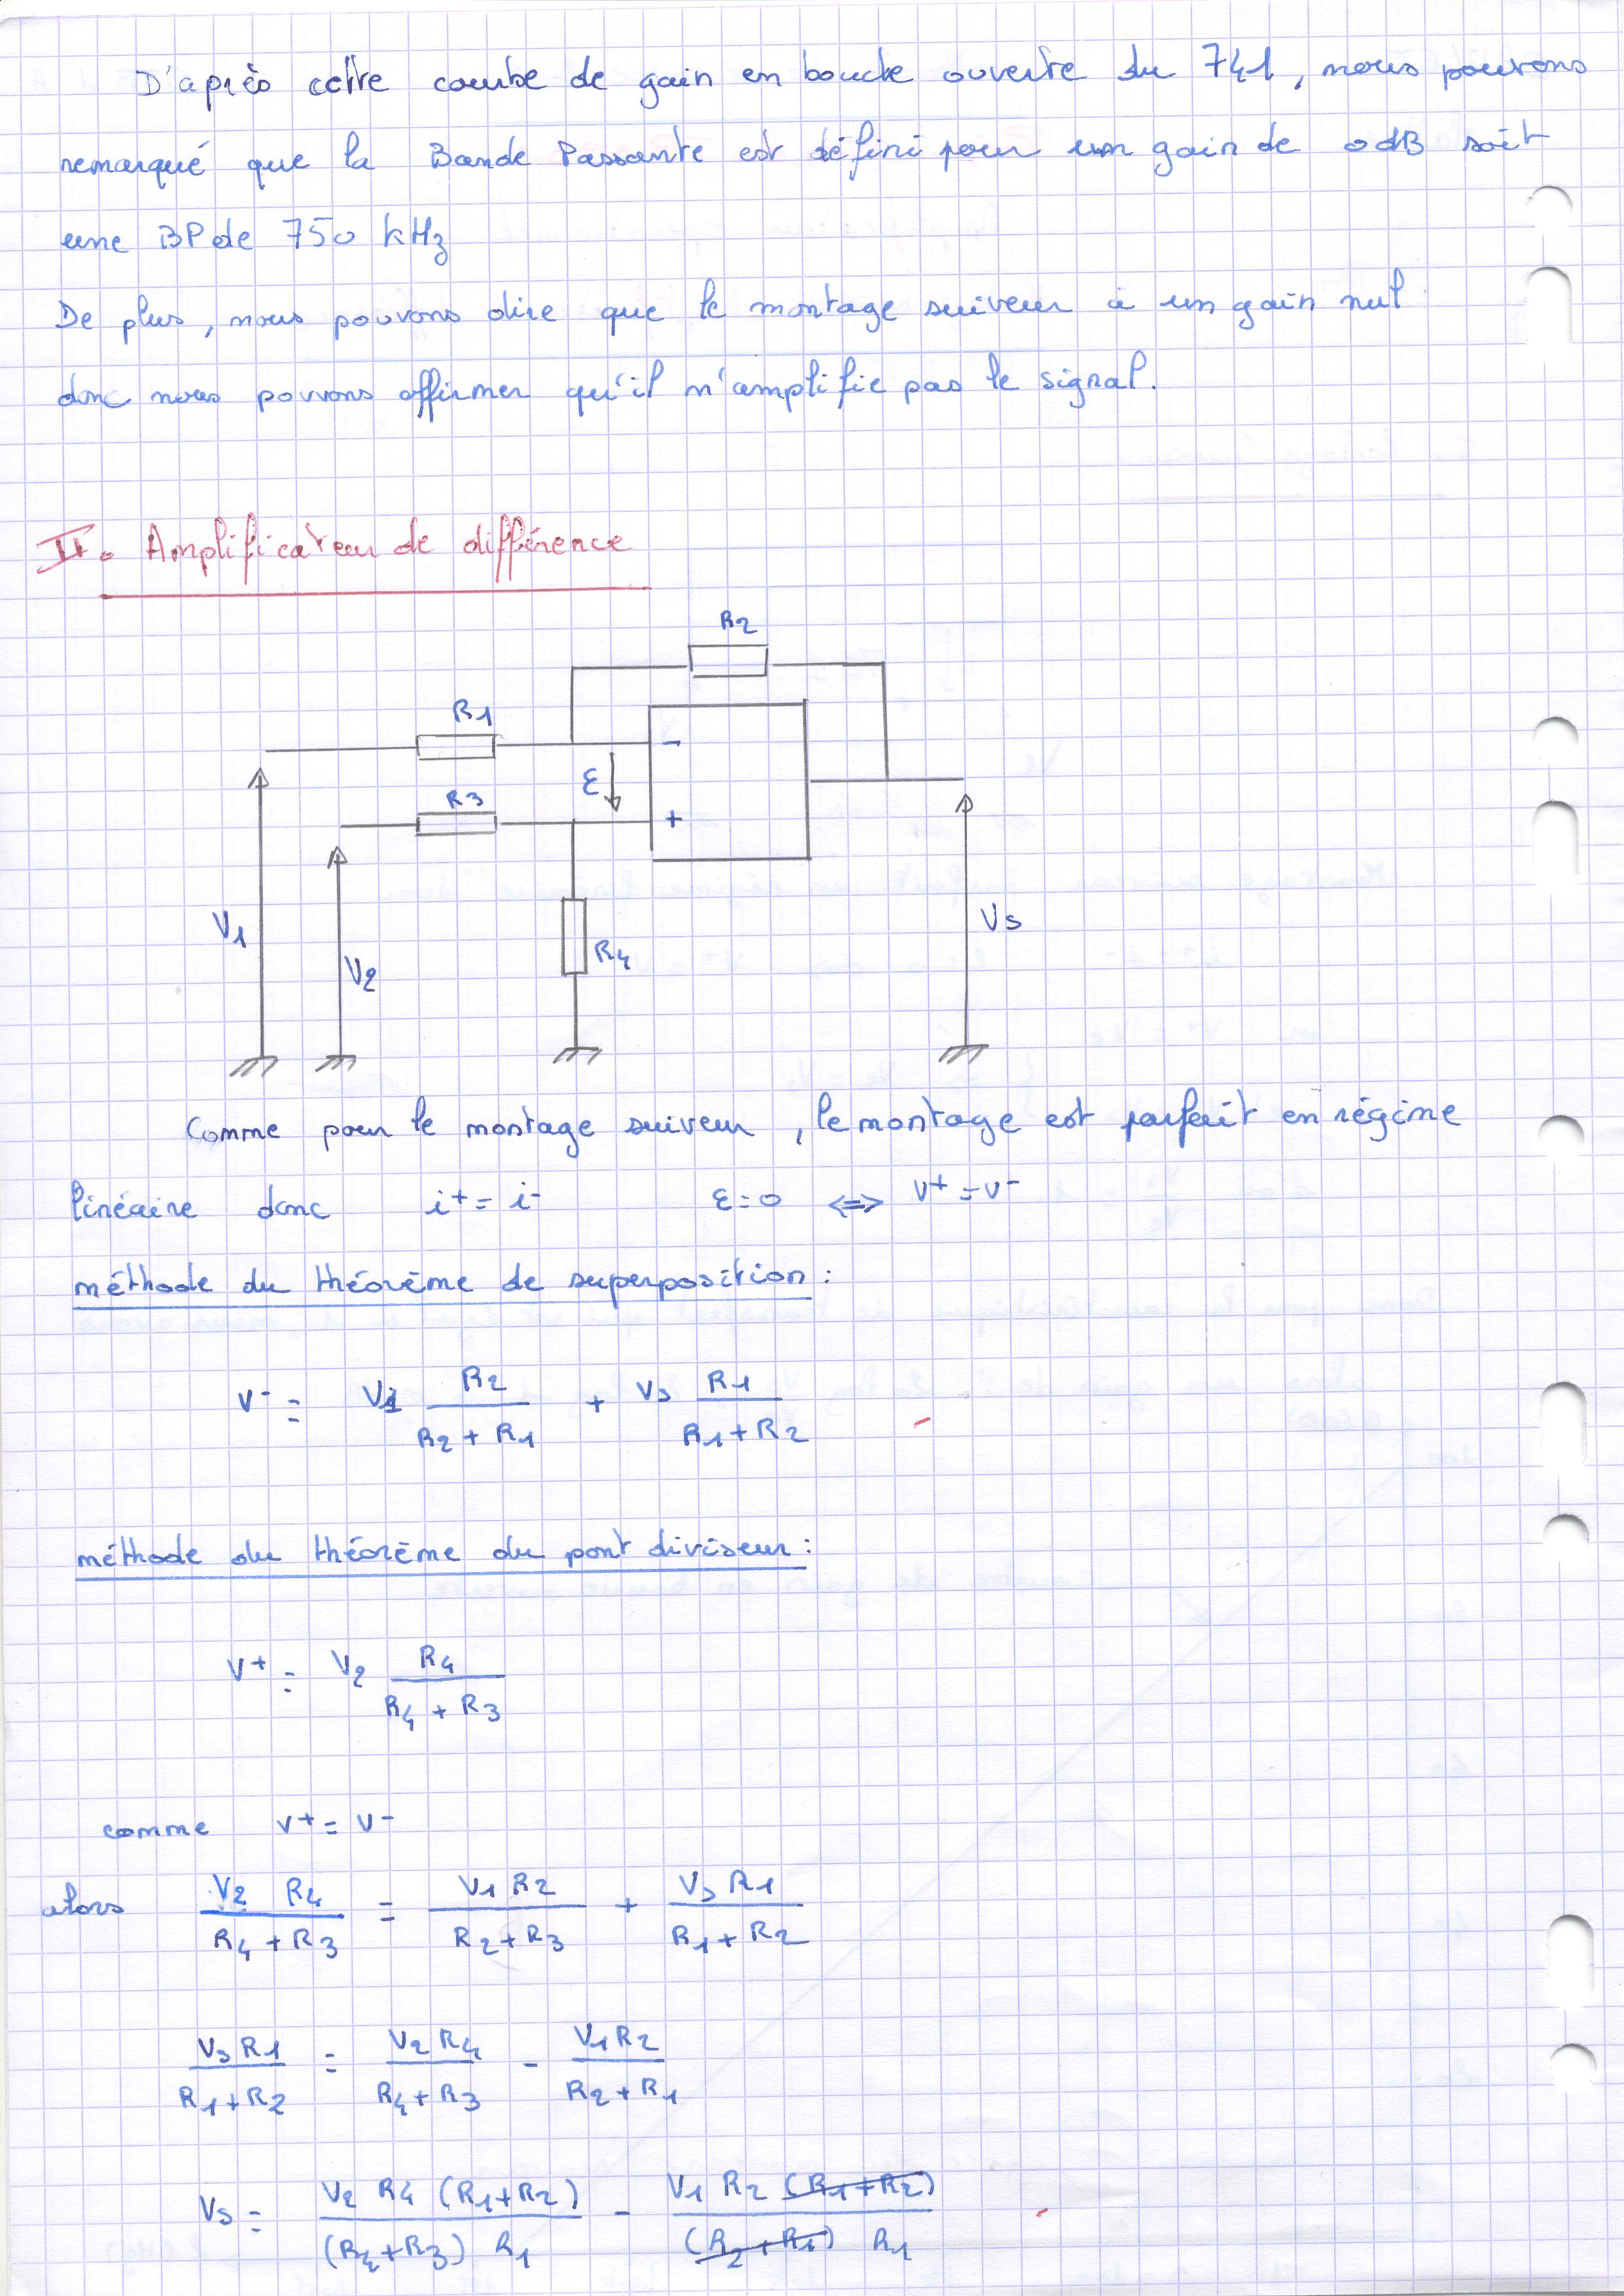 D'après cette courbe de gain en boucle ouverte du 741, nous pouvons
remarqué que la Bande Passante est défini pour un gain de 0dB soit
une BP de 750 kHz
De plus, nous pouvons dire que le montage suiveur à un gain nul
donc nous pouvons affirmer qu'il n'amplifie pas le signal.
II. Amplificateur de différence
R2
R1
-
ε
R3
+
V1
V2
R4
Vs
Comme pour le montage suiveur, le montage est parfait en régime
linéaire donc i+ = i- ε=0 <=> V+ = V-
méthode du théorème de superposition :
V- = V1 R2/(R2 + R1) + Vs R1/(R1 + R2)
méthode du théorème du pont diviseur :
V+ = V2 R4/(R4 + R3)
comme V+ = V-
alors V2 R4/(R4 + R3) = V1 R2/(R2 + R3) + Vs R1/(R1 + R2)
Vs R1/(R1 + R2) = V2 R4/(R4 + R3) - V1 R2/(R2 + R1)
Vs = V2 R4 (R1+R2)/((R4+R3) R1) - V1 R2 (R1+R2)/((R2+R1) R1)